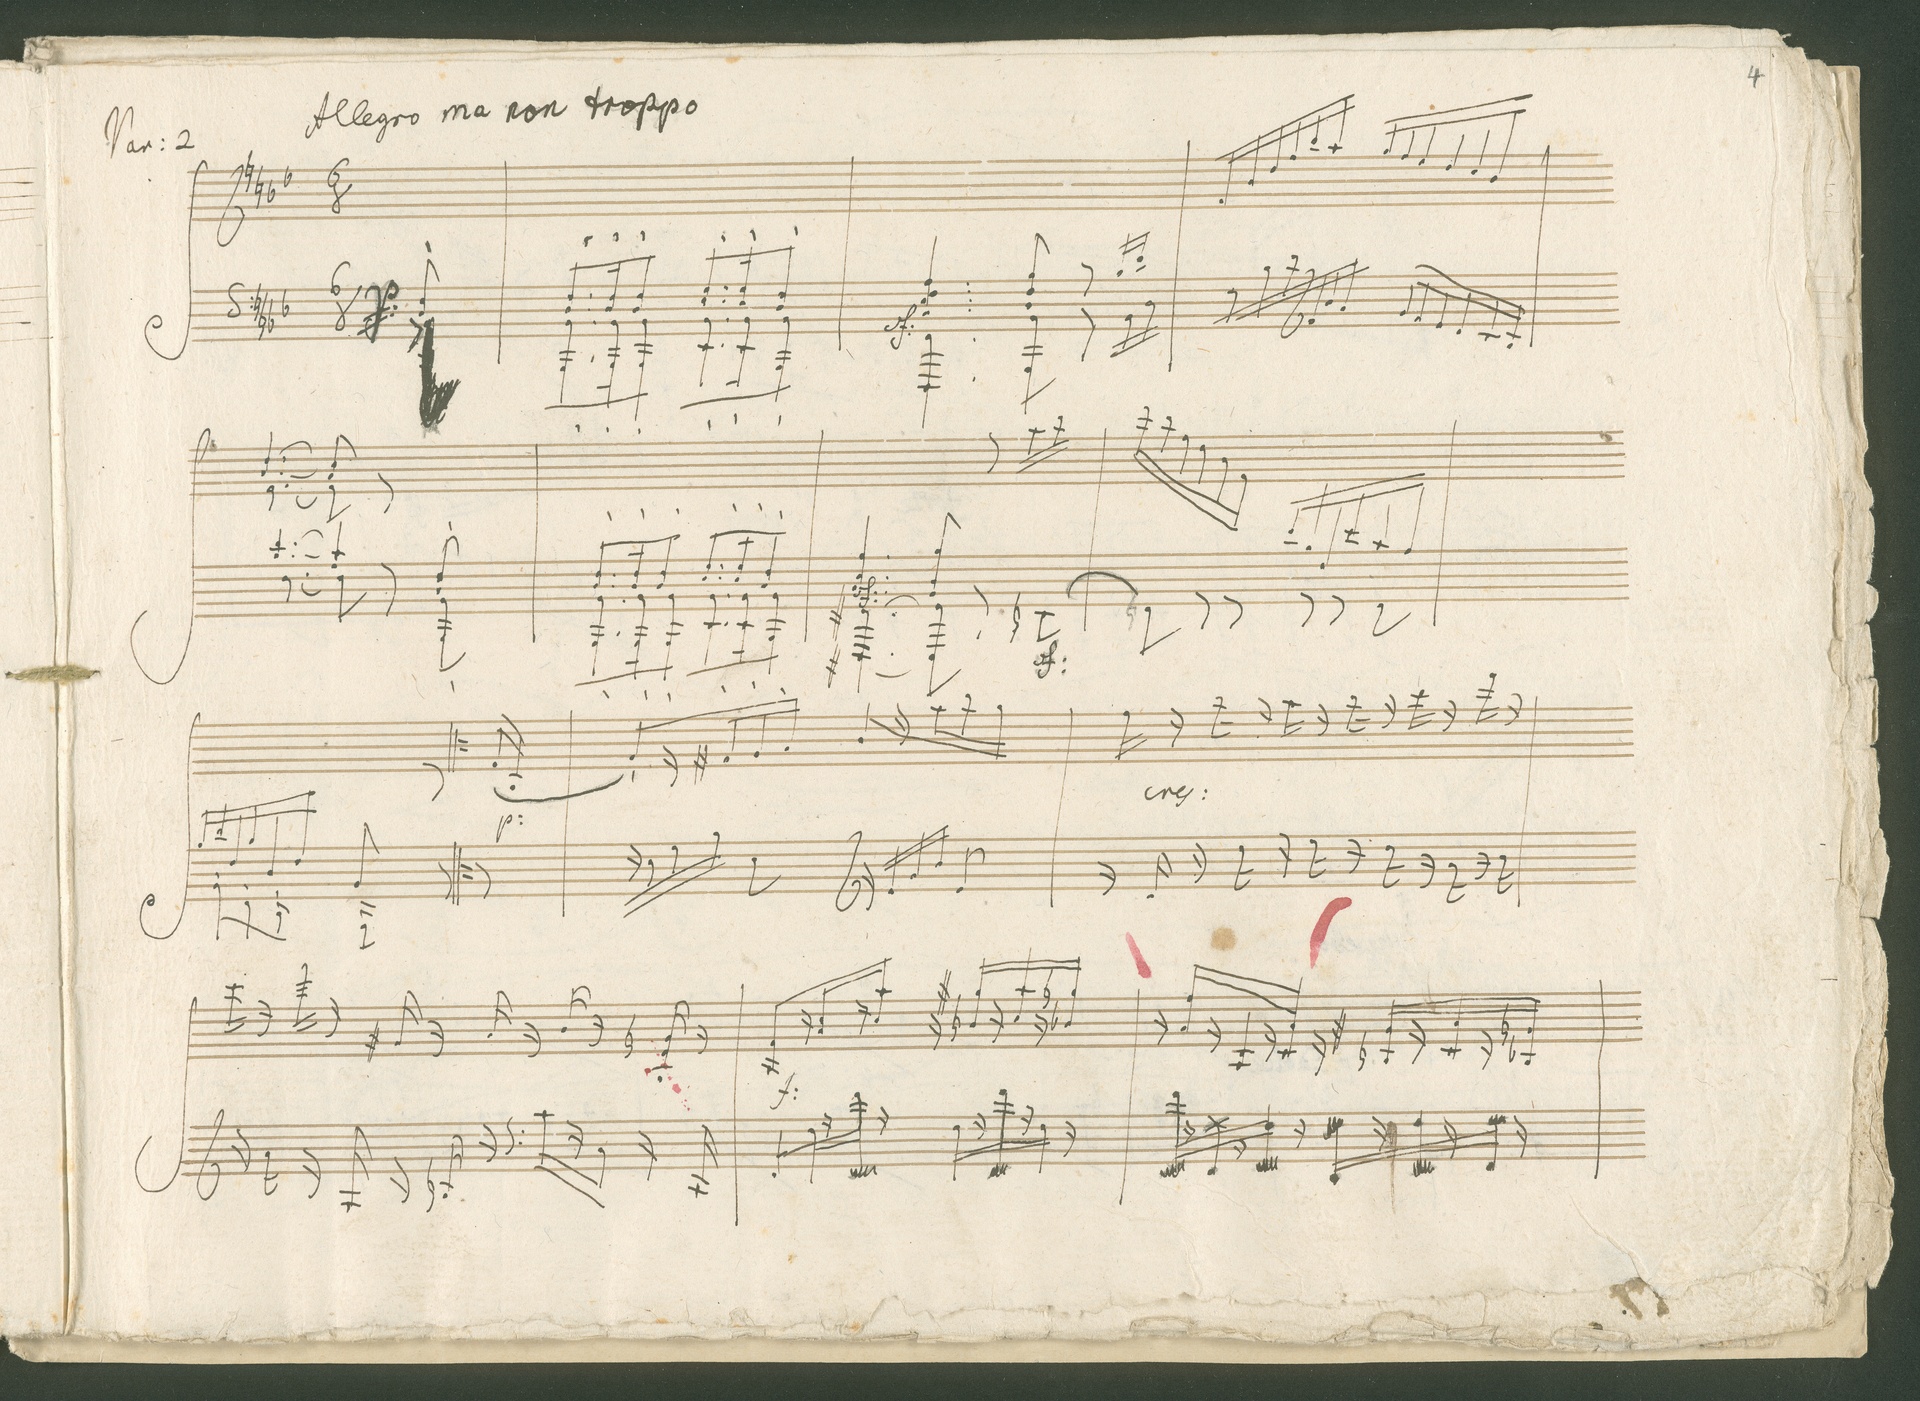 4
Var: 2 Allegro ma non troppo
6
8
6
8
sf:
sf:
p:
cres:
f: